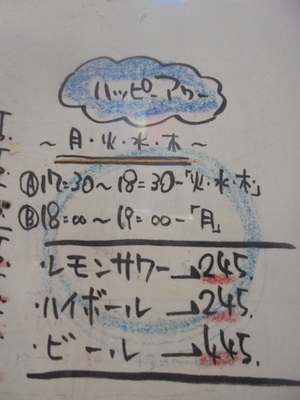 ハッピーアワー
～月・火・水・木～
Ⓐ17:30～18:30-「火・水・木」
Ⓑ18:00～19:00-「月」
・レモンサワー→245.
・ハイボール→245.
・ビール→445.